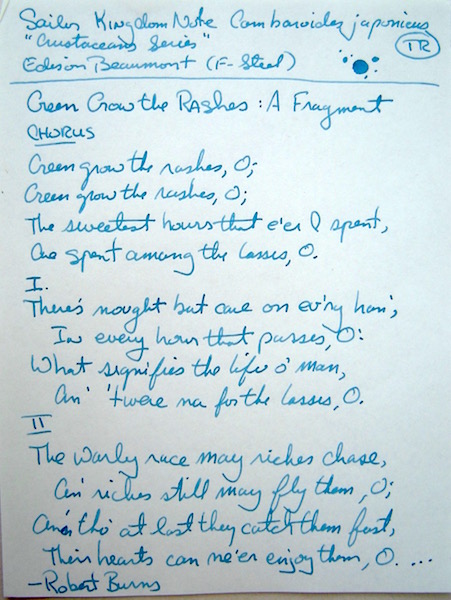 Sailor Kingdom Note Cambaroides japonicus
"Crustaceans Series" TR
Edison Beaumont (F-Steel)
Green Grow the RAshes : A Fragment
CHORUS
Green grow the rashes, O;
Green grow the rashes, O;
The sweetest hours that e'er I spent,
Are spent among the lasses, O.
I.
There's nought but care on ev'ry han',
In every hour that passes, O:
What signifies the life o' man,
An' 'twere na for the lasses, O.
II
The warly race may riches chase,
An' riches still may fly them, O;
An' tho' at last they catch them fast,
Their hearts can ne'er enjoy them, O. ...
—Robert Burns